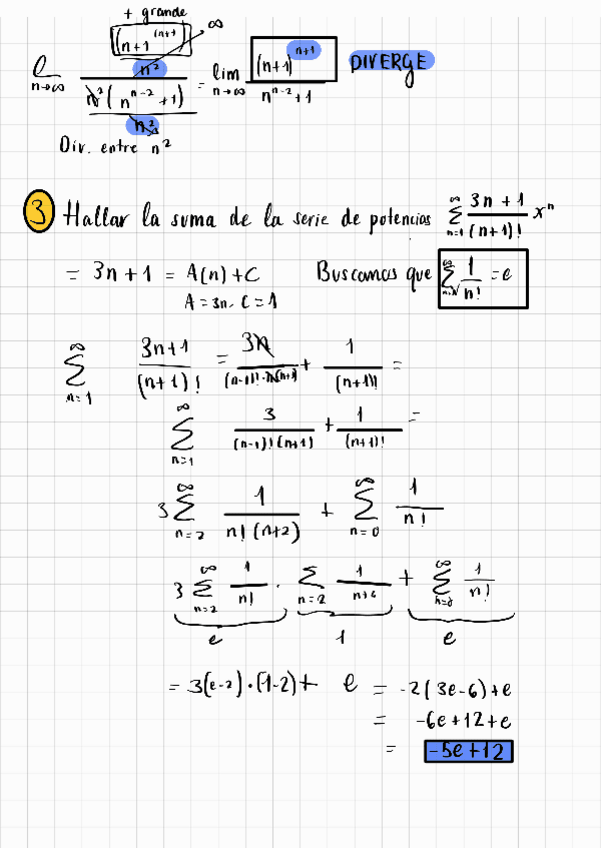 + grande
(n+1^(n+1)) ∞
n²
ℓ n→∞ n²(n^(n-2)+1) = lim n→∞ (n+1)^(n+1) / n^(n-2)+1 DIVERGE
n²
Div. entre n²
3 Hallar la suma de la serie de potencias ∞ Σ n=1 3n+1/(n+1)! xⁿ
= 3n+1 = A(n)+C Buscamos que ∞ Σ 1/n! = e
A = 3n. C = 1
∞ Σ n=1 3n+1/(n+1)! = 3n/(n-1)!·n(n+1) + 1/(n+1)! =
∞ Σ n=1 3/(n-1)!(n+1) + 1/(n+1)! =
3 ∞ Σ n=2 1/n!(n+2) + ∞ Σ n=0 1/n!
3 ∞ Σ n=2 1/n! · Σ n=2 + ∞ Σ 1/n!
e 1 e
= 3(e-2)·(1-2)+ e = -2(3e-6)+e
= -6e+12+e
= -5e+12